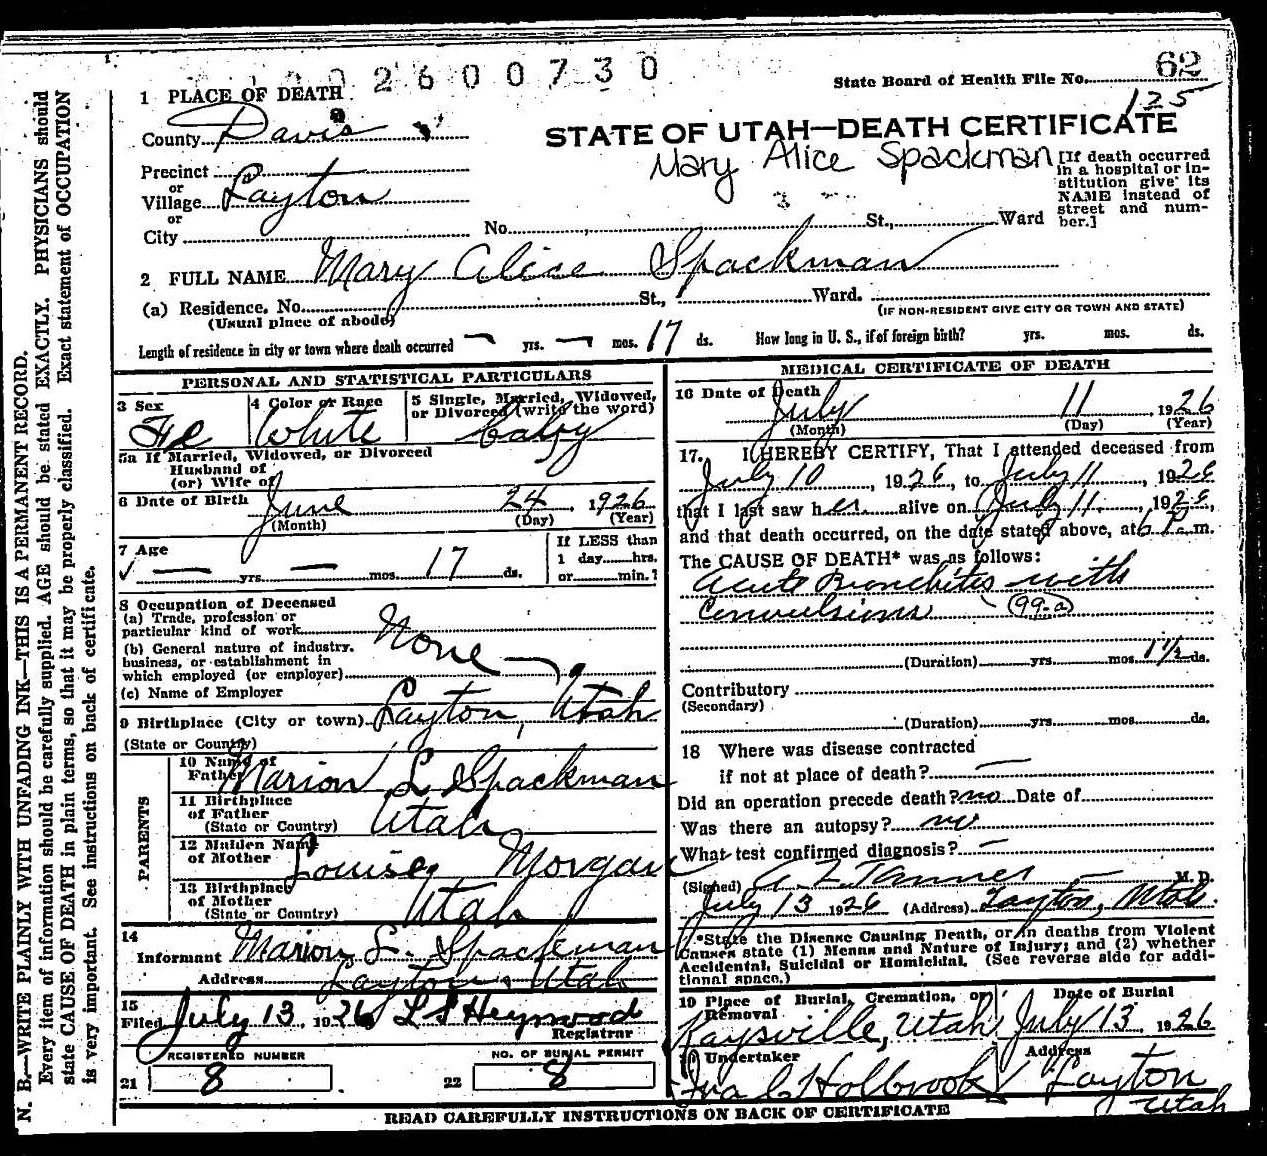 2600730
State Board of Health File No. 62
125
1 PLACE OF DEATH
County Davis
STATE OF UTAH—DEATH CERTIFICATE
Mary Alice Spackman
[If death occurred in a hospital or in-
stitution give its
NAME instead of
street and num-
ber.]
Precinct
or
Village Layton
or
City
No. St., Ward
2 FULL NAME Mary Alice Spackman
(a) Residence. No. St., Ward.
(Usual place of abode)
(IF NON-RESIDENT GIVE CITY OR TOWN AND STATE)
Length of residence in city or town where death occurred — yrs. — mos. 17 ds. How long in U. S., if of foreign birth? yrs. mos. ds.
PERSONAL AND STATISTICAL PARTICULARS
3 Sex
Fe
4 Color or Race
White
5 Single, Married, Widowed,
or Divorced (write the word)
baby
5a If Married, Widowed, or Divorced
Husband of
(or) Wife of
6 Date of Birth June 24, 1926
(Month) (Day) (Year)
7 Age
— yrs. — mos. 17 ds.
If LESS than
1 day....hrs.
or....min.?
8 Occupation of Deceased
(a) Trade, profession or
particular kind of work
None
(b) General nature of industry.
business, or establishment in
which employed (or employer)
(c) Name of Employer
9 Birthplace (City or town) Layton, Utah
(State or Country)
PARENTS
10 Name of
Father Marion L Spackman
11 Birthplace
of Father
(State or Country) Utah
12 Maiden Name
of Mother Louise Morgan
13 Birthplace
of Mother
(State or Country) Utah
14
Informant Marion L. Spackman
Address Layton, Utah
15
Filed July 13 1926 L S Heywood
Registrar
REGISTERED NUMBER
21 8
NO. OF BURIAL PERMIT
22 8
MEDICAL CERTIFICATE OF DEATH
16 Date of Death
July 11, 1926
(Month) (Day) (Year)
17. I HEREBY CERTIFY, That I attended deceased from
July 10, 1926, to July 11, 1926
that I last saw her alive on July 11, 1926,
and that death occurred, on the date stated above, at 6 P. m.
The CAUSE OF DEATH* was as follows:
Acute Bronchitis with
Convulsions (99-a)
(Duration) yrs. mos. 1½ ds.
Contributory
(Secondary)
(Duration) yrs. mos. ds.
18 Where was disease contracted
if not at place of death? —
Did an operation precede death? no Date of
Was there an autopsy? no
What test confirmed diagnosis? —
(Signed) A Z Tanner M. D.
July 13 1926 (Address) Layton, Utah.
*State the Disease Causing Death, or in deaths from Violent
Causes state (1) Means and Nature of Injury; and (2) whether
Accidental, Suicidal or Homicidal. (See reverse side for addi-
tional space.)
19 Place of Burial, Cremation, or
Removal
Kaysville, Utah
Date of Burial
July 13 1926
20 Undertaker
Ira C Holbrook
Address
Layton
Utah
READ CAREFULLY INSTRUCTIONS ON BACK OF CERTIFICATE
N. B.—WRITE PLAINLY WITH UNFADING INK—THIS IS A PERMANENT RECORD.
Every item of information should be carefully supplied. AGE should be stated EXACTLY. PHYSICIANS should
state CAUSE OF DEATH in plain terms, so that it may be properly classified. Exact statement of OCCUPATION
is very important. See instructions on back of certificate.